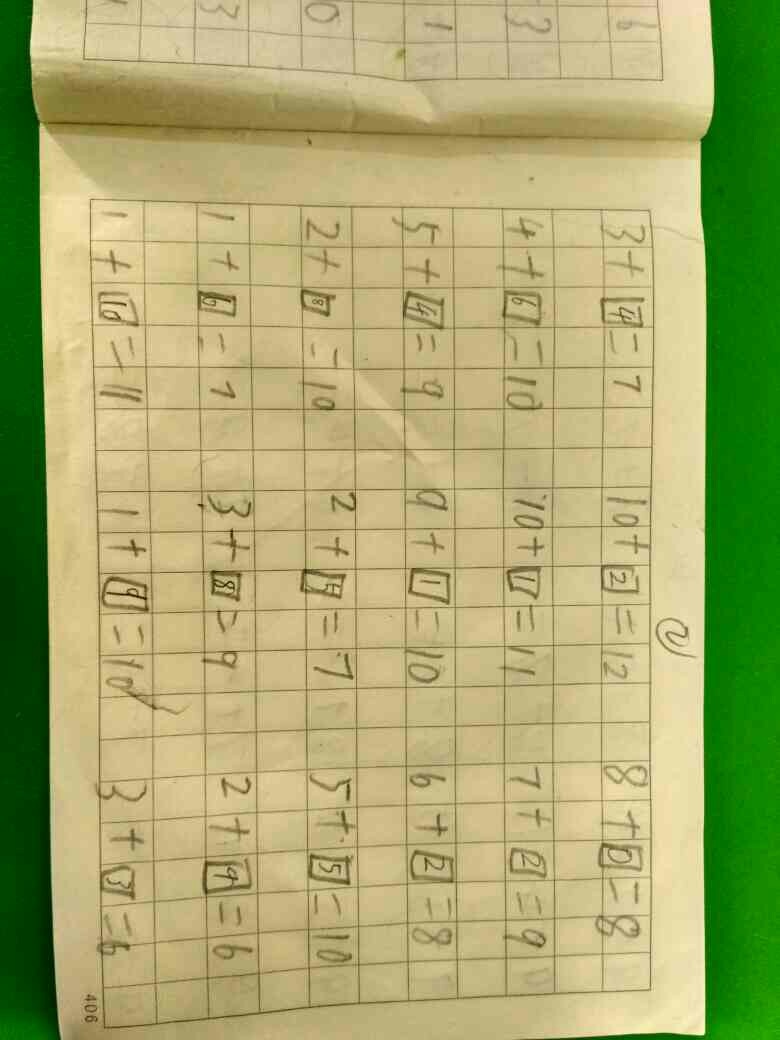 3+4=7 10+2=12 8+0=8
4+6=10 10+1=11 7+2=9
5+4=9 9+1=10 6+2=8
2+8=10 2+5=7 5+5=10
1+6=7 3+8=9 2+4=6
1+10=11 1+9=10 3+3=6
406